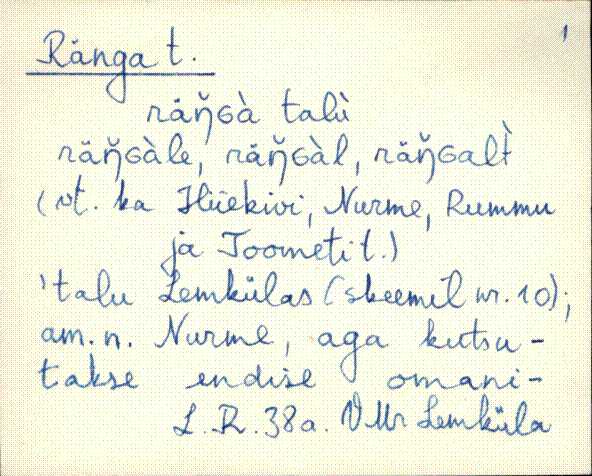 Ränga t. 1
räŋ̆Gà talù
räŋ̆Gàle, räŋ̆Gàl, räŋ̆Galt̀
(vt. ka Hiiekivi, Nurme, Rummu
ja Toometi t.)
'talu Lemkülas (skeemil nr. 10);
am. n. Nurme, aga kutsu-
takse endise omani-
L. R. 38a. VMr Lemküla